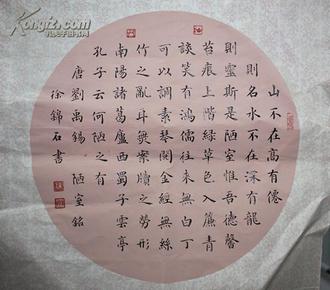 山不在高有僊
則名水不在深有龍
則靈斯是陋室惟吾德馨
苔痕上階綠草色入簾青
談笑有鴻儒往來無白丁
可以調素琴閱金經無絲
竹之亂耳無案牘之勞形
南陽諸葛廬西蜀子雲亭
孔子云何陋之有
唐劉禹錫 陋室銘
徐錦石書